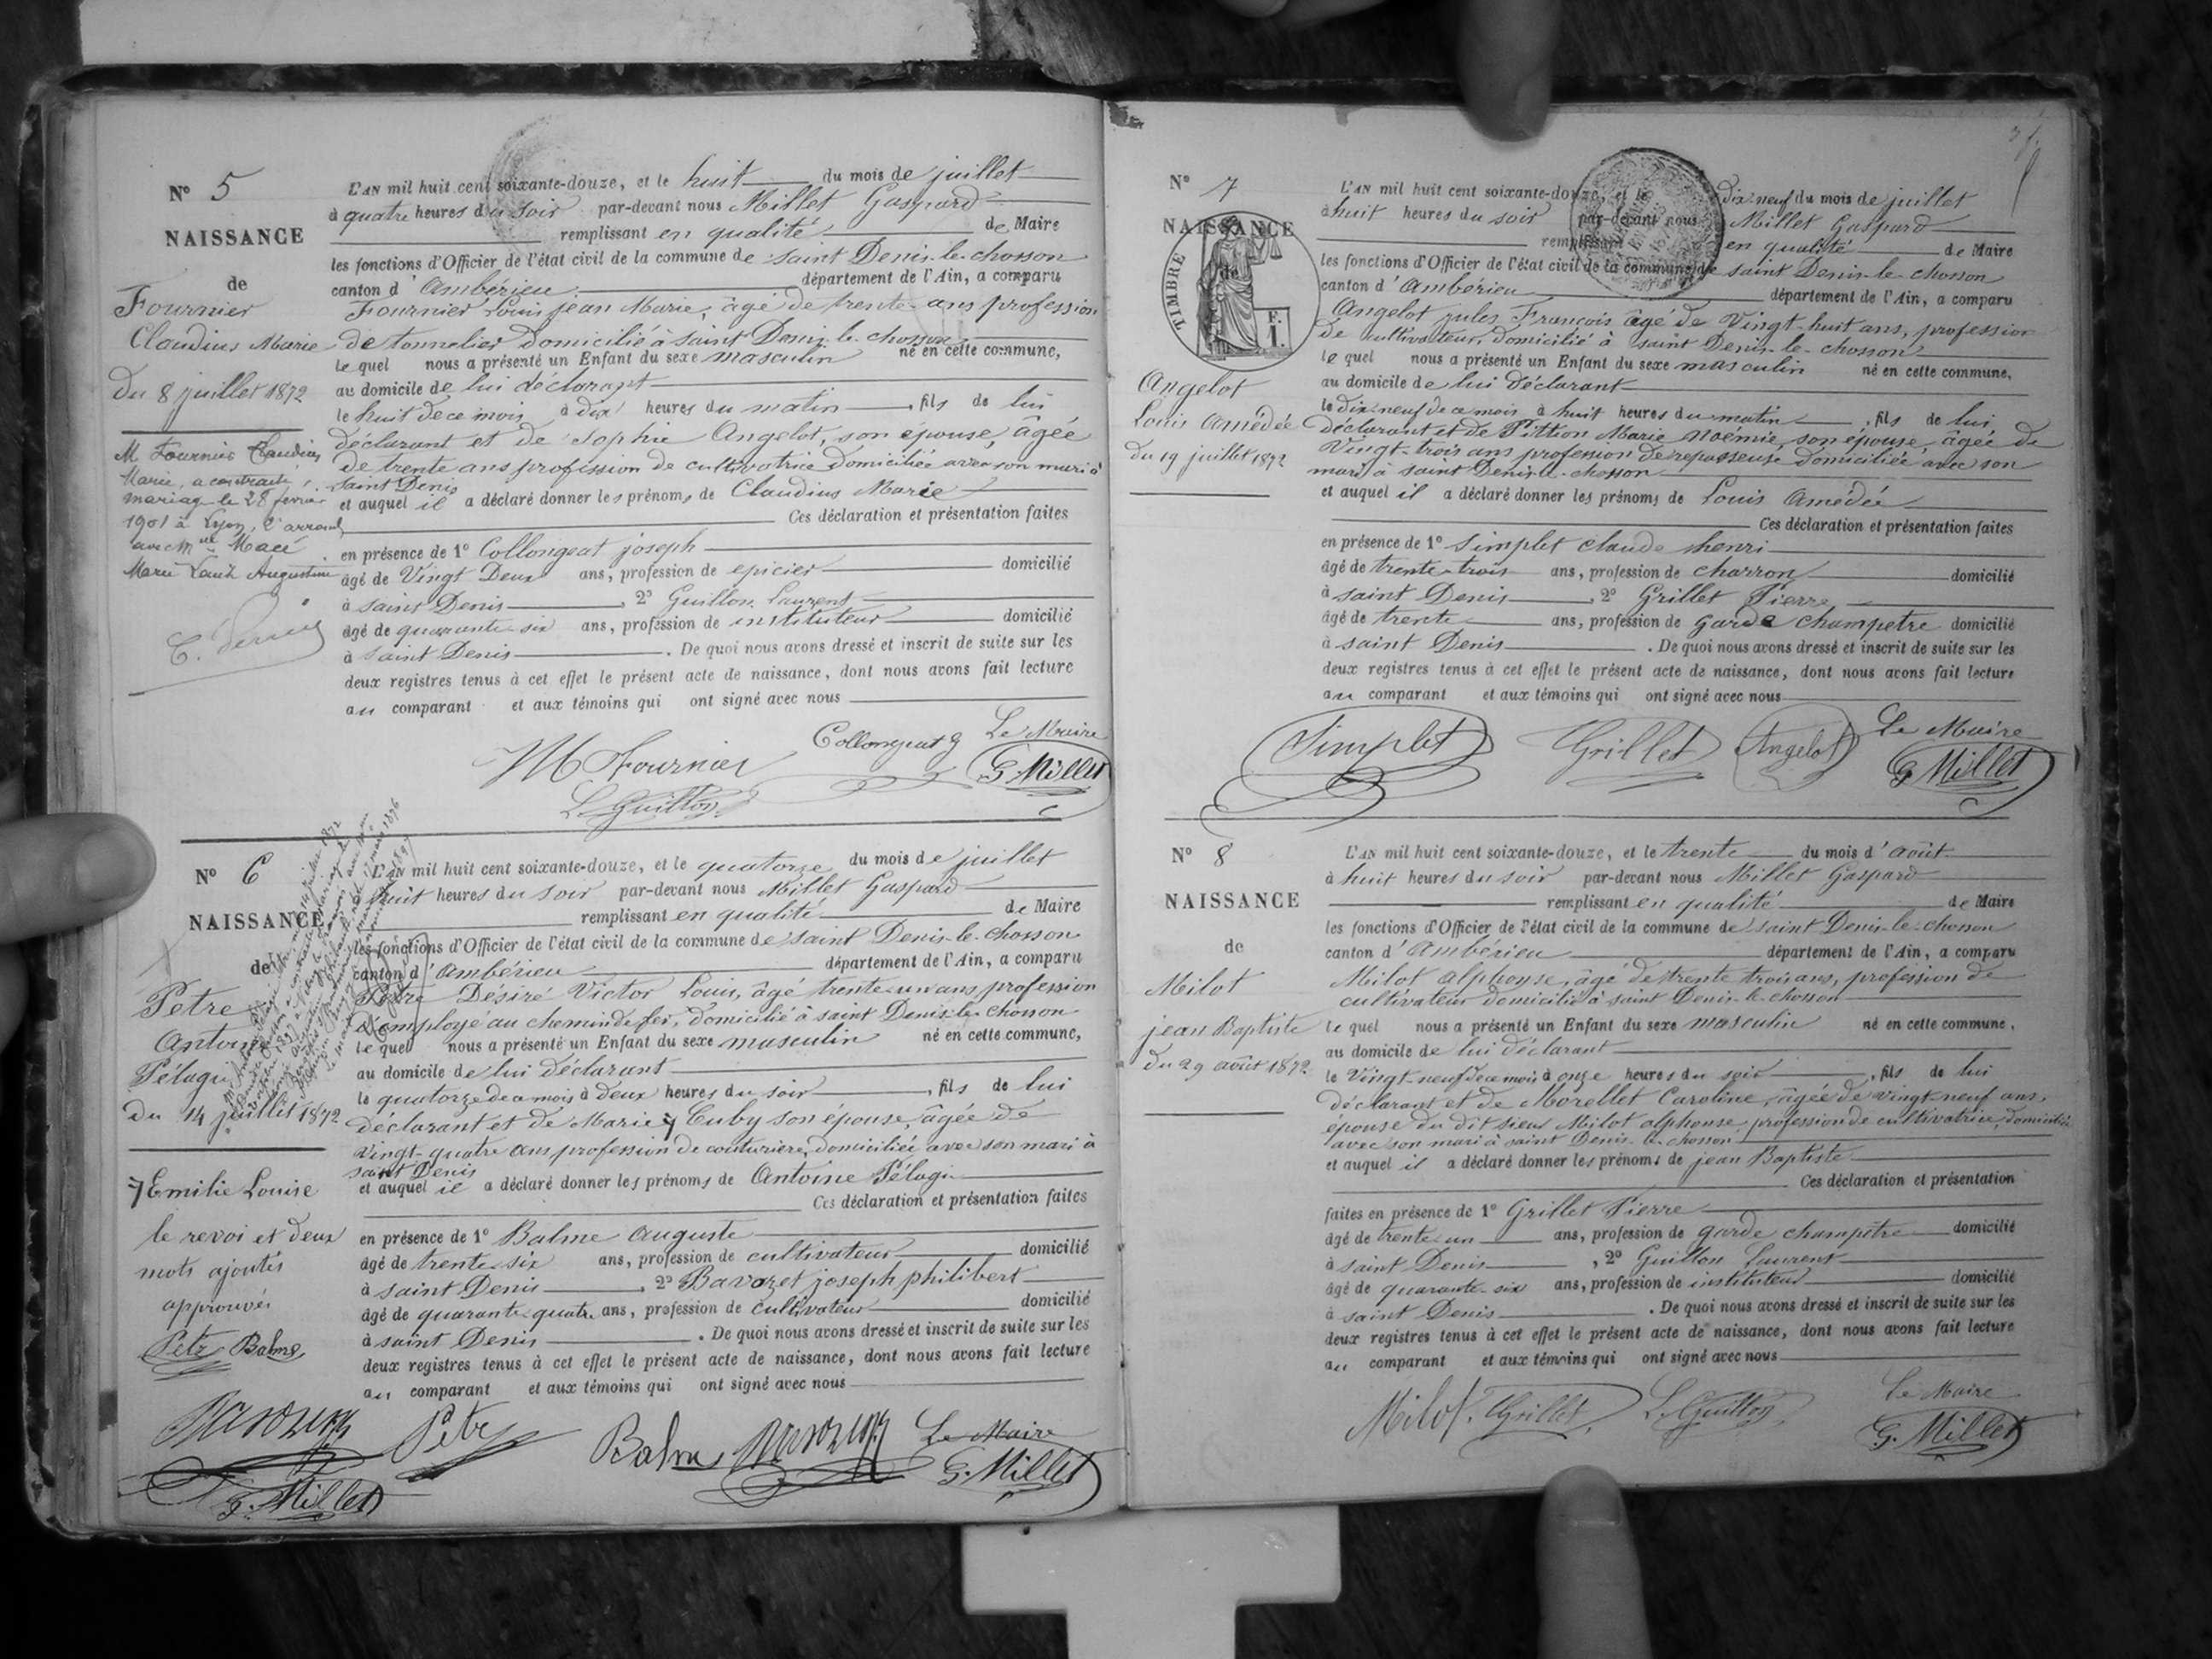 N° 5
NAISSANCE
de
Fournier
Claudius Marie
Du 8 juillet 1872
M Fournier Claudius
Marie, a contracté
mariage le 28 fevrier
1901 à Lyon,
avec Mlle Macé
Marie Augustine
L'AN mil huit cent soixante-douze, et le huit du mois de juillet
à quatre heures du soir par-devant nous Millet Gaspard
remplissant en qualité de Maire
les fonctions d'Officier de l'état civil de la commune de saint Denis-le-chosson
canton d'Ambérieu département de l'Ain, a comparu
Fournier Louis jean Marie, âgé de trente ans profession
de tonnelier domicilié à saint Denis-le-chosson
le quel nous a présenté un Enfant du sexe masculin né en cette commune,
au domicile de lui déclarant
le huit de ce mois à dix heures du matin, fils de lui
déclarant et de Sophie Angelot, son épouse, âgée
de trente ans profession de cultivatrice domiciliée avec son mari à
saint Denis
et auquel il a déclaré donner les prénoms de Claudius Marie
Ces déclaration et présentation faites
en présence de 1° Collongeat joseph
âgé de Vingt Deux ans, profession de epicier domicilié
à saint Denis, 2° Guillon Laurent
âgé de quarante-six ans, profession de instituteur domicilié
à saint Denis. De quoi nous avons dressé et inscrit de suite sur les
deux registres tenus à cet effet le présent acte de naissance, dont nous avons fait lecture
au comparant et aux témoins qui ont signé avec nous
M Fournier Collongeat J Le Maire
L. Guillon G. Millet
N° 6
NAISSANCE
de
Petre
Antoine
Pélagi
Du 14 juillet 1872
7 Emilie Louise
le revoi et deux
mots ajoutés
approuvés
Petre Balme
G. Millet
L'AN mil huit cent soixante-douze, et le quatorze du mois de juillet
huit heures du soir par-devant nous Millet Gaspard
remplissant en qualité de Maire
les fonctions d'Officier de l'état civil de la commune de saint Denis-le-chosson
canton d'Ambérieu département de l'Ain, a comparu
Petre Désiré Victor Louis, âgé trente-un ans profession
d'employé au chemin de fer, domicilié à saint Denis-le-chosson
le quel nous a présenté un Enfant du sexe masculin né en cette commune,
au domicile de lui déclarant
le quatorze de ce mois à deux heures du soir, fils de lui
déclarant et de Marie 7 Cuby son épouse, âgée de
vingt-quatre ans profession de couturière, domiciliée avec son mari à
saint Denis
et auquel il a déclaré donner les prénoms de Antoine Pélagi
Ces déclaration et présentation faites
en présence de 1° Balme Auguste
âgé de trente six ans, profession de cultivateur domicilié
à saint Denis, 2° Bavozet joseph philibert
âgé de quarante-quatre ans, profession de cultivateur domicilié
à saint Denis. De quoi nous avons dressé et inscrit de suite sur les
deux registres tenus à cet effet le présent acte de naissance, dont nous avons fait lecture
au comparant et aux témoins qui ont signé avec nous
Petre Balme Le Maire
G. Millet
N° 7
NAISSANCE
de
TIMBRE
F.
1.
Angelot
Louis Amédée
du 19 juillet 1872
L'AN mil huit cent soixante-douze, et le dix-neuf du mois de juillet
à huit heures du soir par-devant nous Millet Gaspard
remplissant en qualité de Maire
les fonctions d'Officier de l'état civil de la commune de saint Denis-le-chosson
canton d'Ambérieu département de l'Ain, a comparu
Angelot jules François âgé de Vingt-huit ans, profession
de cultivateur, domicilié à saint Denis-le-chosson
le quel nous a présenté un Enfant du sexe masculin né en cette commune,
au domicile de lui Déclarant
le dix-neuf de ce mois à huit heures du matin, fils de lui
déclarant et de Pittion Marie Noémie, son épouse, âgée de
Vingt-trois ans profession de repasseuse domiciliée avec son
mari à saint Denis-le-chosson
et auquel il a déclaré donner les prénoms de Louis Amédée
Ces déclaration et présentation faites
en présence de 1° Simplet Claude henri
âgé de trente-trois ans, profession de charron domicilié
à saint Denis, 2° Grillet Pierre
âgé de trente ans, profession de garde champetre domicilié
à saint Denis. De quoi nous avons dressé et inscrit de suite sur les
deux registres tenus à cet effet le présent acte de naissance, dont nous avons fait lecture
au comparant et aux témoins qui ont signé avec nous
Simplet Grillet Angelot Le Maire
G Millet
N° 8
NAISSANCE
de
Milot
jean Baptiste
du 29 août 1872
L'AN mil huit cent soixante-douze, et le trente du mois d'août
à huit heures du soir par-devant nous Millet Gaspard
remplissant en qualité de Maire
les fonctions d'Officier de l'état civil de la commune de saint Denis-le-chosson
canton d'Ambérieu département de l'Ain, a comparu
Milot alphonse, âgé de trente trois ans, profession de
cultivateur domicilié à saint Denis-le-chosson
le quel nous a présenté un Enfant du sexe masculin né en cette commune,
au domicile de lui déclarant
le Vingt-neuf de ce mois à onze heures du soir, fils de lui
déclarant et de Morellet Caroline, âgée de vingt neuf ans,
épouse du dit sieur Milot alphonse, profession de cultivatrice, domiciliée
avec son mari à saint Denis-le-chosson
et auquel il a déclaré donner les prénoms de jean Baptiste
Ces déclaration et présentation
faites en présence de 1° Grillet Pierre
âgé de trente-un ans, profession de garde champêtre domicilié
à saint Denis, 2° Guillon Laurent
âgé de quarante-six ans, profession de instituteur domicilié
à saint Denis. De quoi nous avons dressé et inscrit de suite sur les
deux registres tenus à cet effet le présent acte de naissance, dont nous avons fait lecture
au comparant et aux témoins qui ont signé avec nous
Milot. Grillet L. Guillon Le Maire
G. Millet